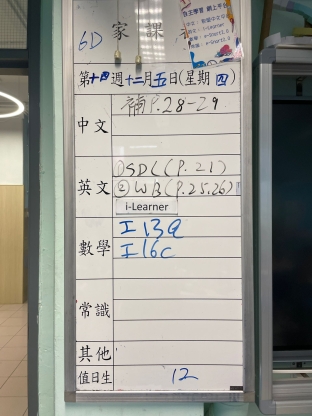 6D 家課
自主學習 網上平台
第十四週十二月五日(星期四)
中文 補P.28-29
英文 ①SDL(P.21)
②WB(P.25.26)
i-Learner
數學 工13a
工16c
常識
其他
值日生 12